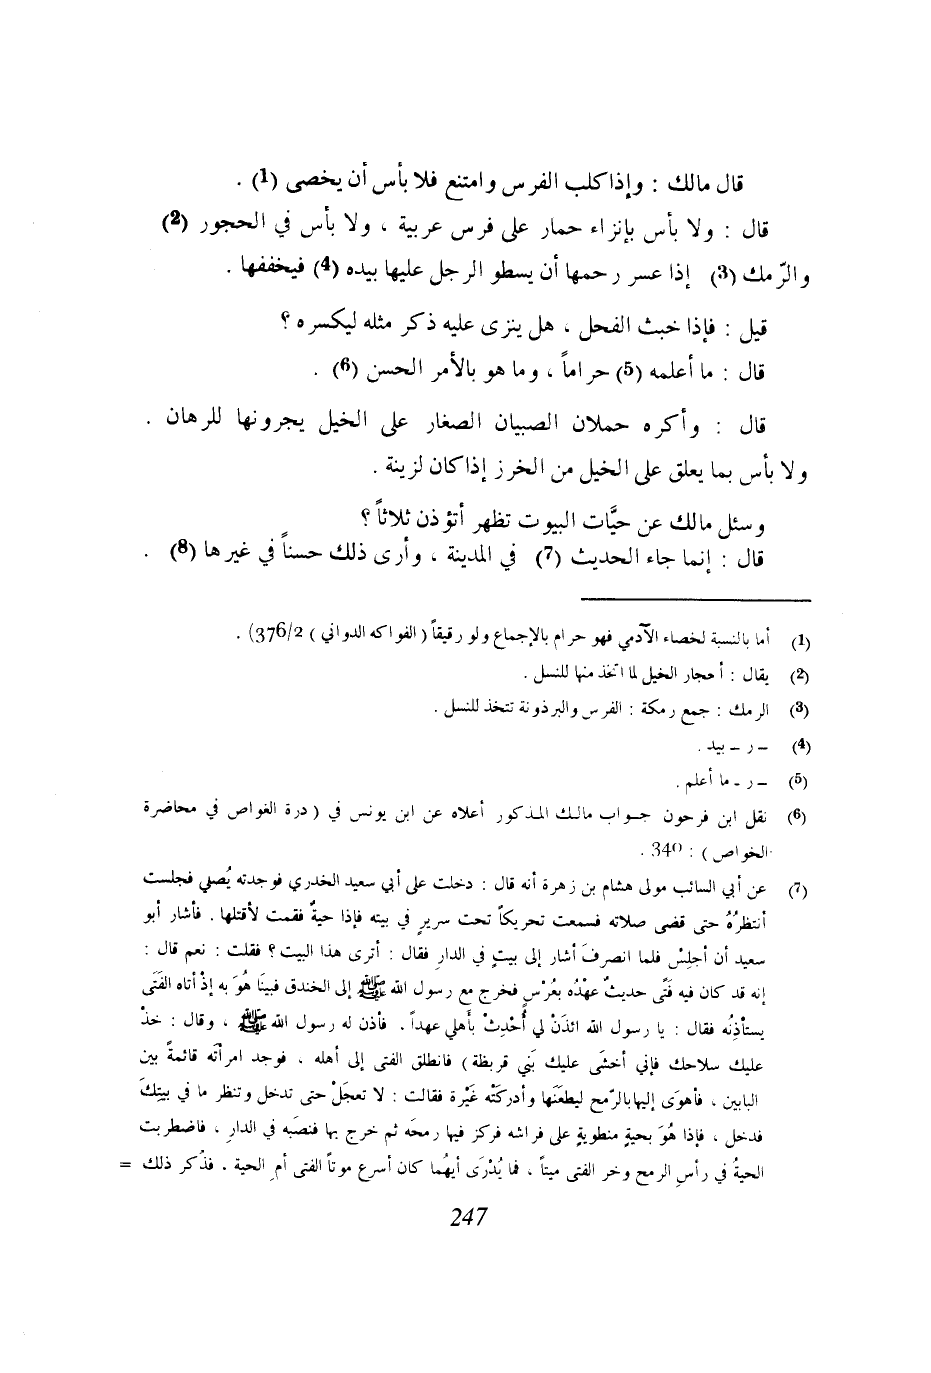 قال مالك : وإذا كلب الفرس وامتنع فلا بأس أن يخصى (1) .
قال : ولا بأس بإنزاء حمار على فرس عربية ، ولا بأس في الحجور (2)
والرّمك (3) إذا عسر رحمها أن يسطو الرجل عليها بيده (4) فيخففها .
قيل : فإذا خبث الفحل ، هل ينزى عليه ذكر مثله ليكسره ؟
قال : ما أعلمه (5) حراماً ، وما هو بالأمر الحسن (6) .
قال : وأكره حملان الصبيان الصغار على الخيل يجرونها للرهان .
ولا بأس بما يعلق على الخيل من الخرز إذا كان لزينة .
وسئل مالك عن حيَّات البيوت تظهر أتؤذن ثلاثاً ؟
قال : إنما جاء الحديث (7) في المدينة ، وأرى ذلك حسناً في غيرها (8) .
(1) أما بالنسبة لخصاء الآدمي فهو حرام بالإجماع ولو رقيقاً ( الفواكه الدواني ) 376/2) .
(2) يقال : أحجار الخيل لما اتخذ منها للنسل .
(3) الرمك : جمع رمكة : الفرس والبرذونة تتخذ للنسل .
(4) – ر – بيد .
(5) – ر - ما أعلم .
(6) نقل ابن فرحون جواب مالك المذكور أعلاه عن ابن يونس في ( درة الغواص في محاضرة
الخواص ) : 340 .
(7) عن أبي السائب مولى هشام بن زهرة أنه قال : دخلت على أبي سعيد الخدري فوجدته يُصلي فجلست
أنتظرُهُ حتى قضى صلاته فسمعت تحريكاً تحت سريرٍ في بيته فإذا حيةٌ فقمت لأقتلها . فأشار أبو
سعيد أن أجلِسْ فلما انصرفَ أشار إلى بيتٍ في الدارِ فقال : أترى هذا البيت ؟ فقلت : نعم قال :
إنه قد كان فيه فَتًى حديثٌ عهْدُه بعُرْسٍ فخرج مع رسول الله ﷺ إلى الخندق فبينَا هُوَ به إذْ أتاه الفَتَى
يستأذِنُه فقال : يا رسول الله ائذَنْ لي أُحْدِثْ بأَهلي عهداً . فأذن له رسول الله ﷺ ، وقال : خذْ
عليك سلاحك فإني أخشَى عليك بَني قريظة ) فانطلق الفتى إلى أهله ، فوجد امرأتَه قائمةً بين
البابين ، فأهوَى إليها بالرّمح ليطعَنَها وأدركَتْه غَيْرة فقالت : لا تعجَلْ حتى تدخل وتنظر ما في بيتِكَ
فدخل ، فإذا هُوَ بحيةٍ منطويةٍ على فراشه فركز فيها رمحَه ثم خرج بها فنصَبه في الدارِ ، فاضطربت
الحيةُ في رأسِ الرمح وخر الفتى ميتاً ، فما يُدْرَى أيهُما كان أسرع موتاً الفتى أمِ الحية . فذُكر ذلك =
247